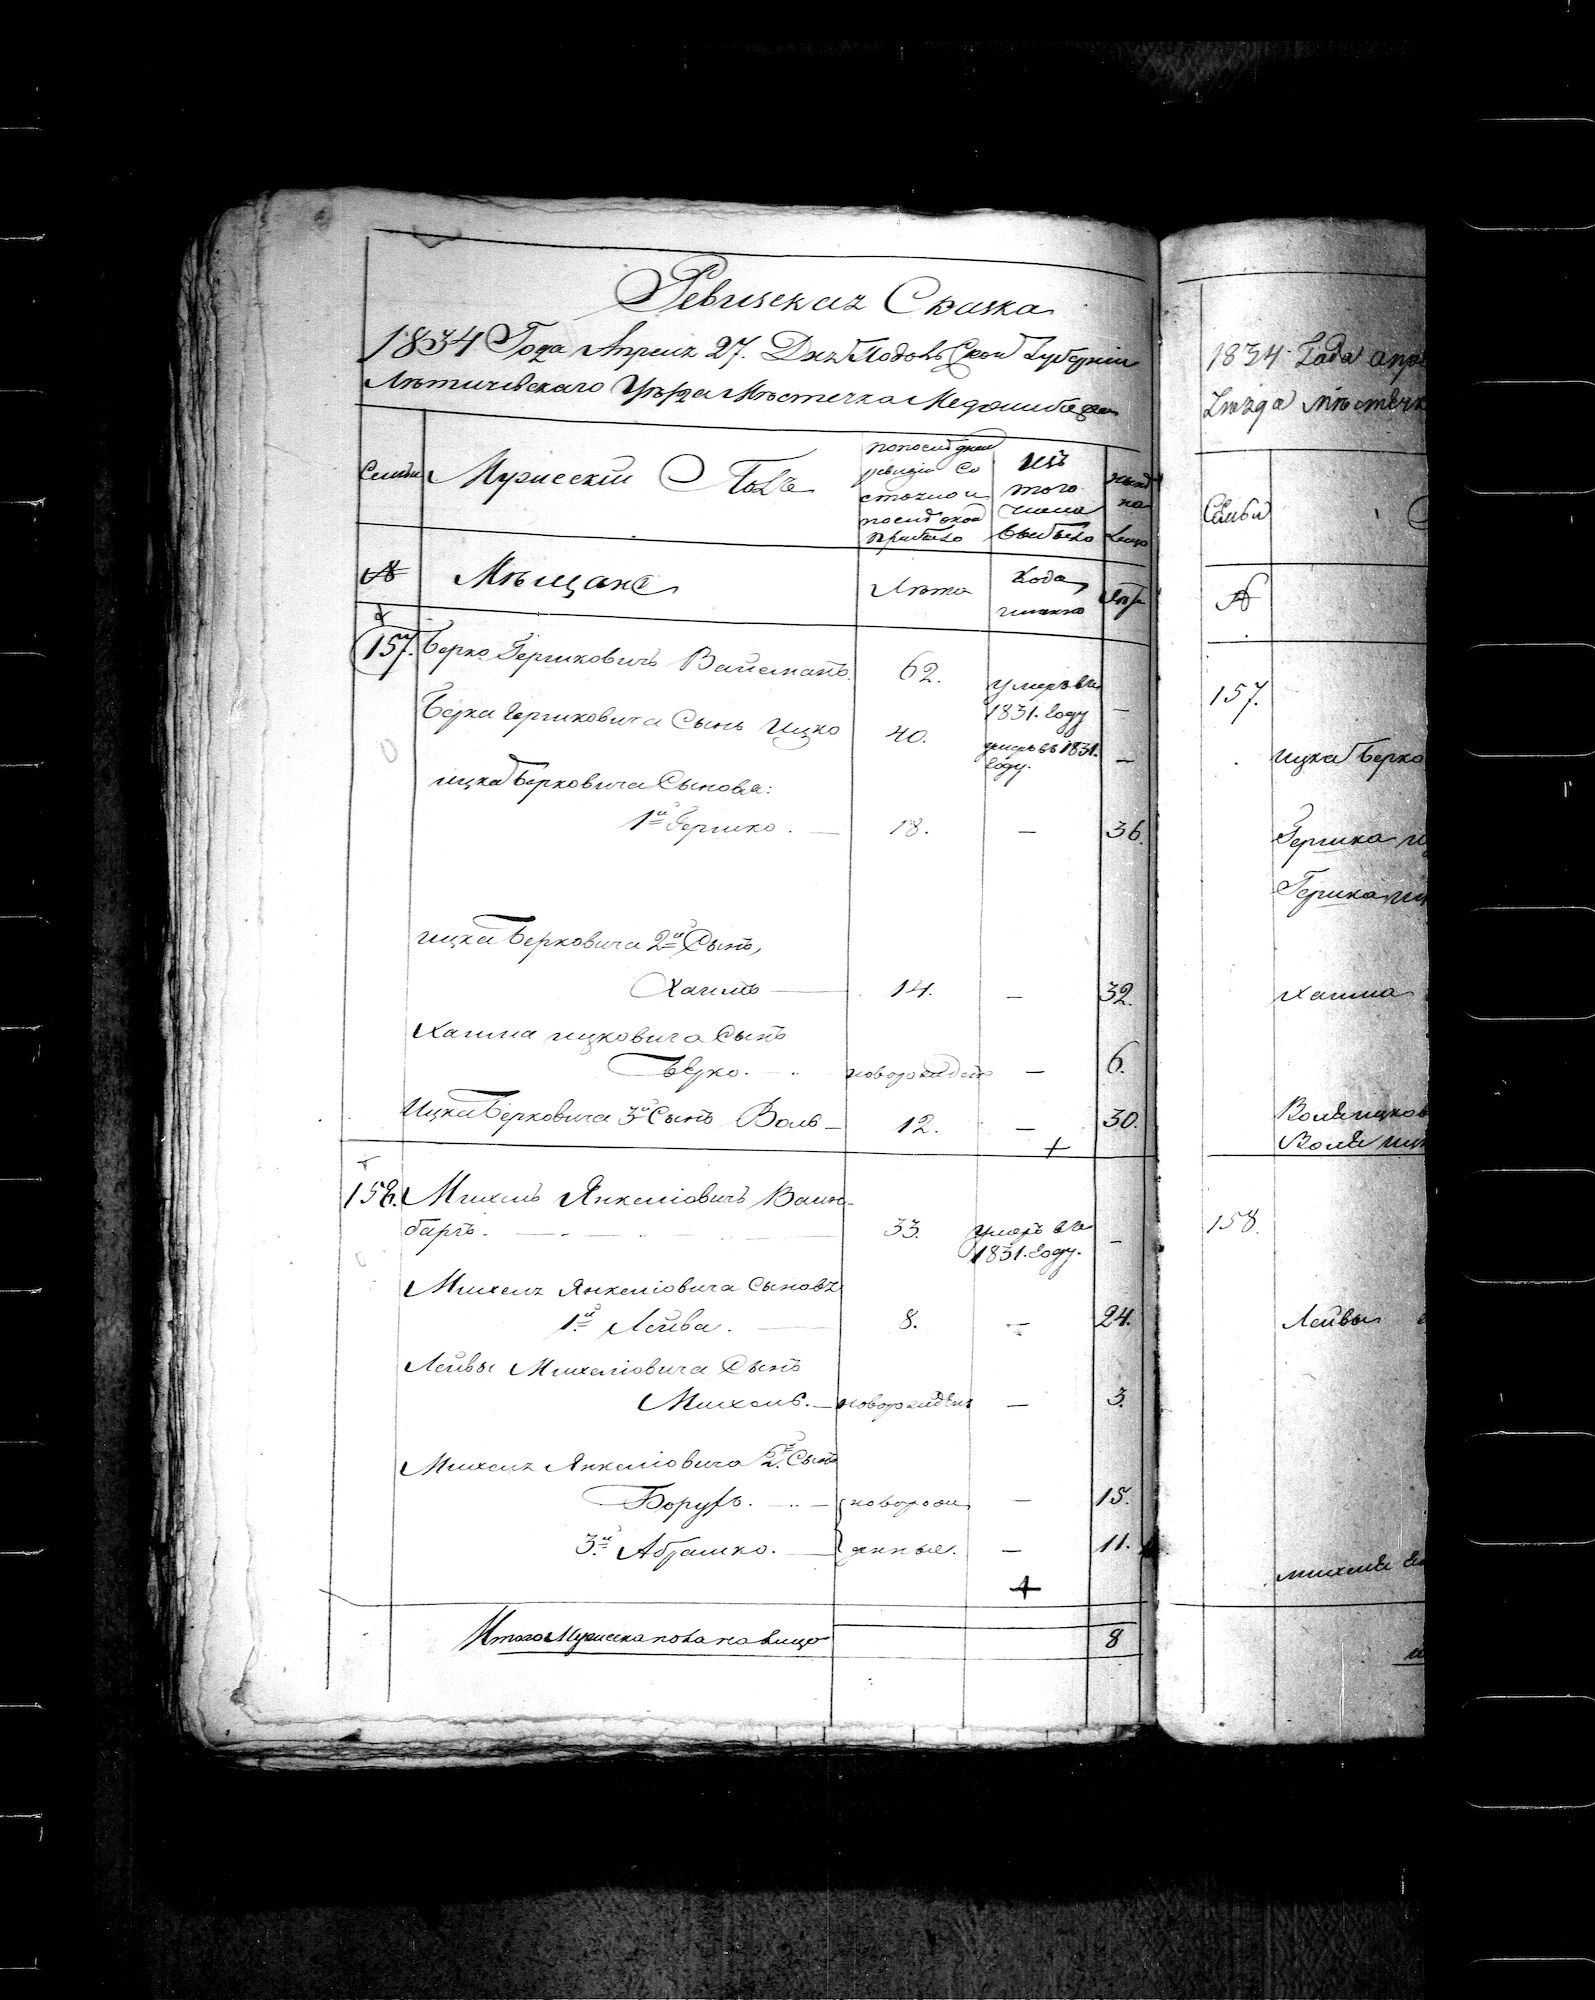 Ревизская Сказка
1834 Года Апреля 27. Дня Подольской Губернии
Лѣтичевскаго Уѣзда Мѣстечка Меджибожа
Семьи
Мужескій Полъ
по последней
ревизіи со
стояло и
после оной
прибыло
изъ
того
числа
выбыло
ныне
на
лицо
№
Мѣщане
Лѣта
Когда
именно
Лѣта
157. Берко Гершковичъ Вайсманъ. 62. умеръ въ
1831. Году —
Берка Гершковича Сынъ Ицко 40. умеръ въ 1831.
Году. —
Ицка Берковича Сыновья:
1й Гершко. — 18. — 36.
Ицка Берковича 2й Сынъ,
Хаимъ — 14. — 32.
Хаима Ицковича Сынъ
Берко. новорожденъ — 6.
Ицка Берковича 3й Сынъ Воль — 12. — 30.
158. Михель Янкеліовичъ Ваин-
баргъ. 33. умеръ въ
1831. Году. —
Михеля Янкеліовича Сыновья
1й Лейва. — 8. — 24.
Лейвы Михеліовича Сынъ
Михель. — новорожденъ — 3.
Михеля Янкеліовича 2й Сынъ
Борухъ. — новорож — 15.
3й Абрашко. — денные. — 11.
Итого Мужеска пола на лицо 8
1834 Года апре
Уезда мѣстечк
Семьи
№
157.
Ицка Берко
Гершка Иц
Гершка Иц
Хаима
Воля Ицков
Воля Ицк
158.
Лейвы
Михеля Ян